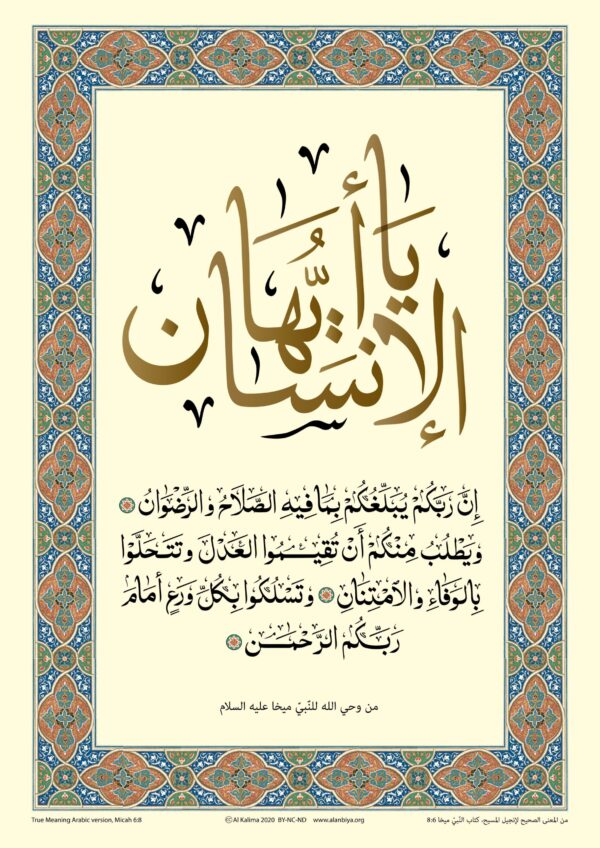 يَا أَيُّهَا
الإِنْسَان
إِنَّ رَبَّكُمْ يُبَلِّغُكُمْ بِمَا فِيهِ الصَّلَاحُ وَالرِّضْوَانُ
وَيَطْلُبُ مِنْكُمْ أَنْ تُقِيمُوا الْعَدْلَ وَتَتَحَلَّوْا
بِالْوَفَاءِ وَالِامْتِنَانِ وَتَسْلُكُوا بِكُلِّ وَرَعٍ أَمَامَ
رَبِّكُمُ الرَّحْمَـٰنِ
من وحي الله للنّبيّ ميخا عليه السلام
True Meaning Arabic version, Micah 6:8
Al Kalima 2020 BY-NC-ND www.alanbiya.org
من المعنى الصحيح لإنجيل المسيح، كتاب النّبيّ ميخا 8:6